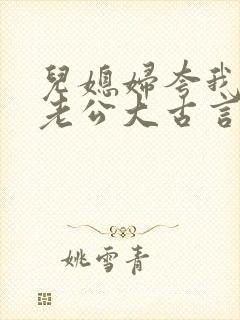 兒媳婦夸我
老公大古言
姚雪青